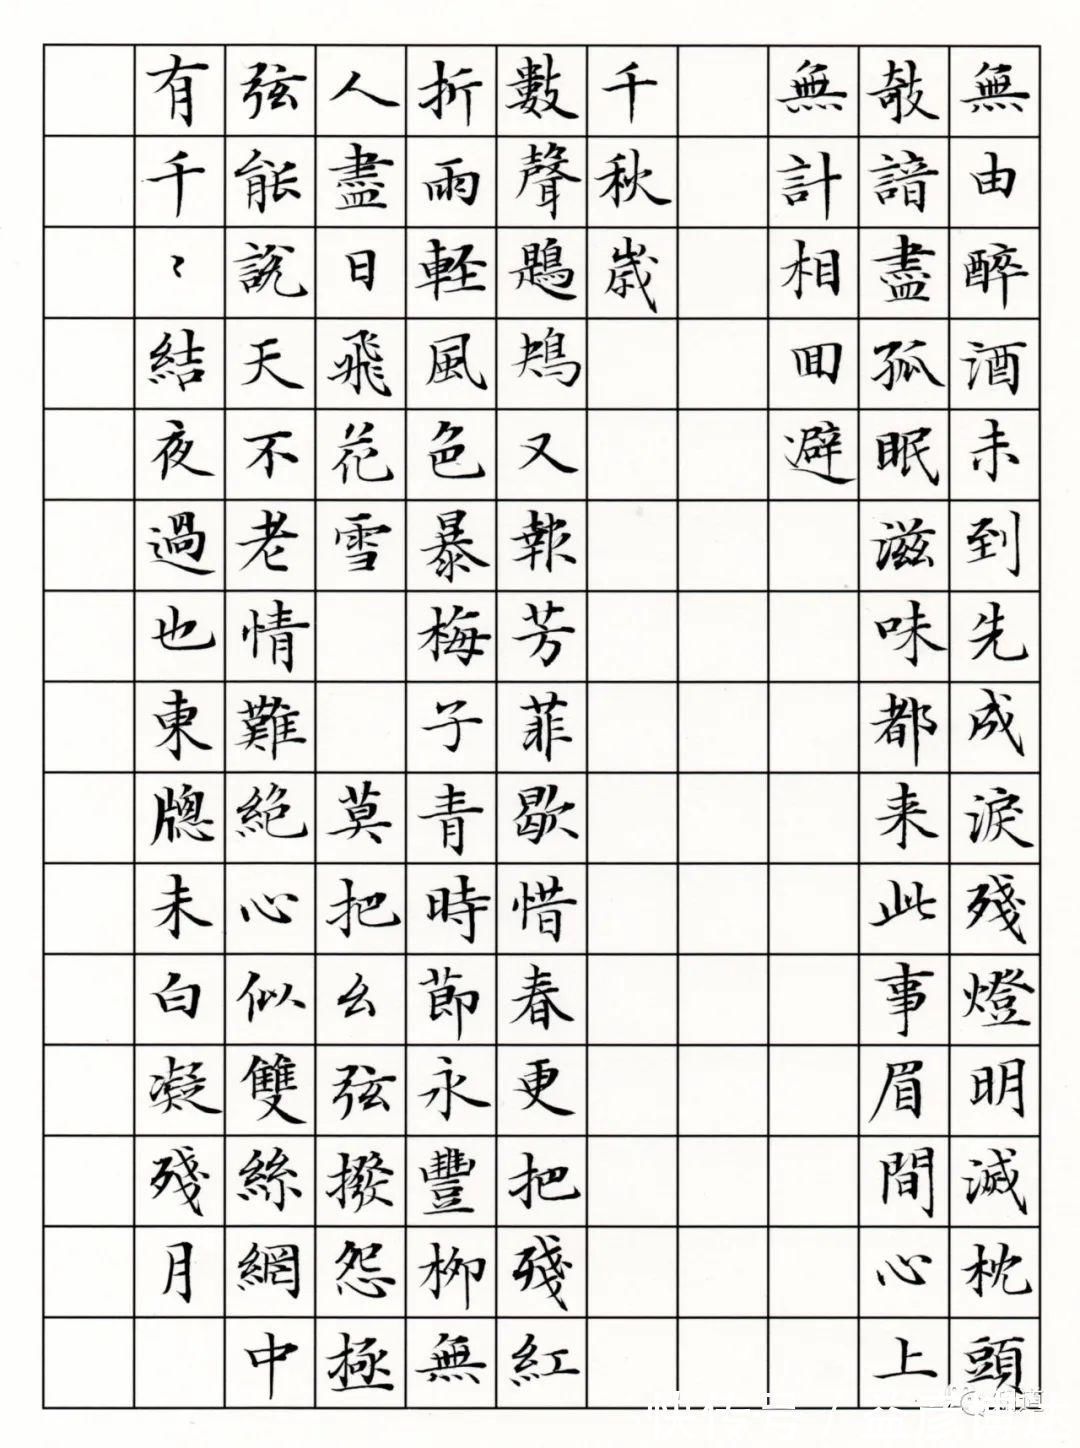 無由醉酒未到先成淚殘燈明滅枕頭
敧諳盡孤眠滋味都来此事眉間心上
無計相回避
千秋歲
數聲鶗鴂又報芳菲歇惜春更把殘紅
折雨輕風色暴梅子青時節永豐柳無
人盡日飛花雪 莫把幺弦撥怨極
弦能説天不老情難絕心似雙絲網中
有千〻結夜過也東牕未白凝殘月